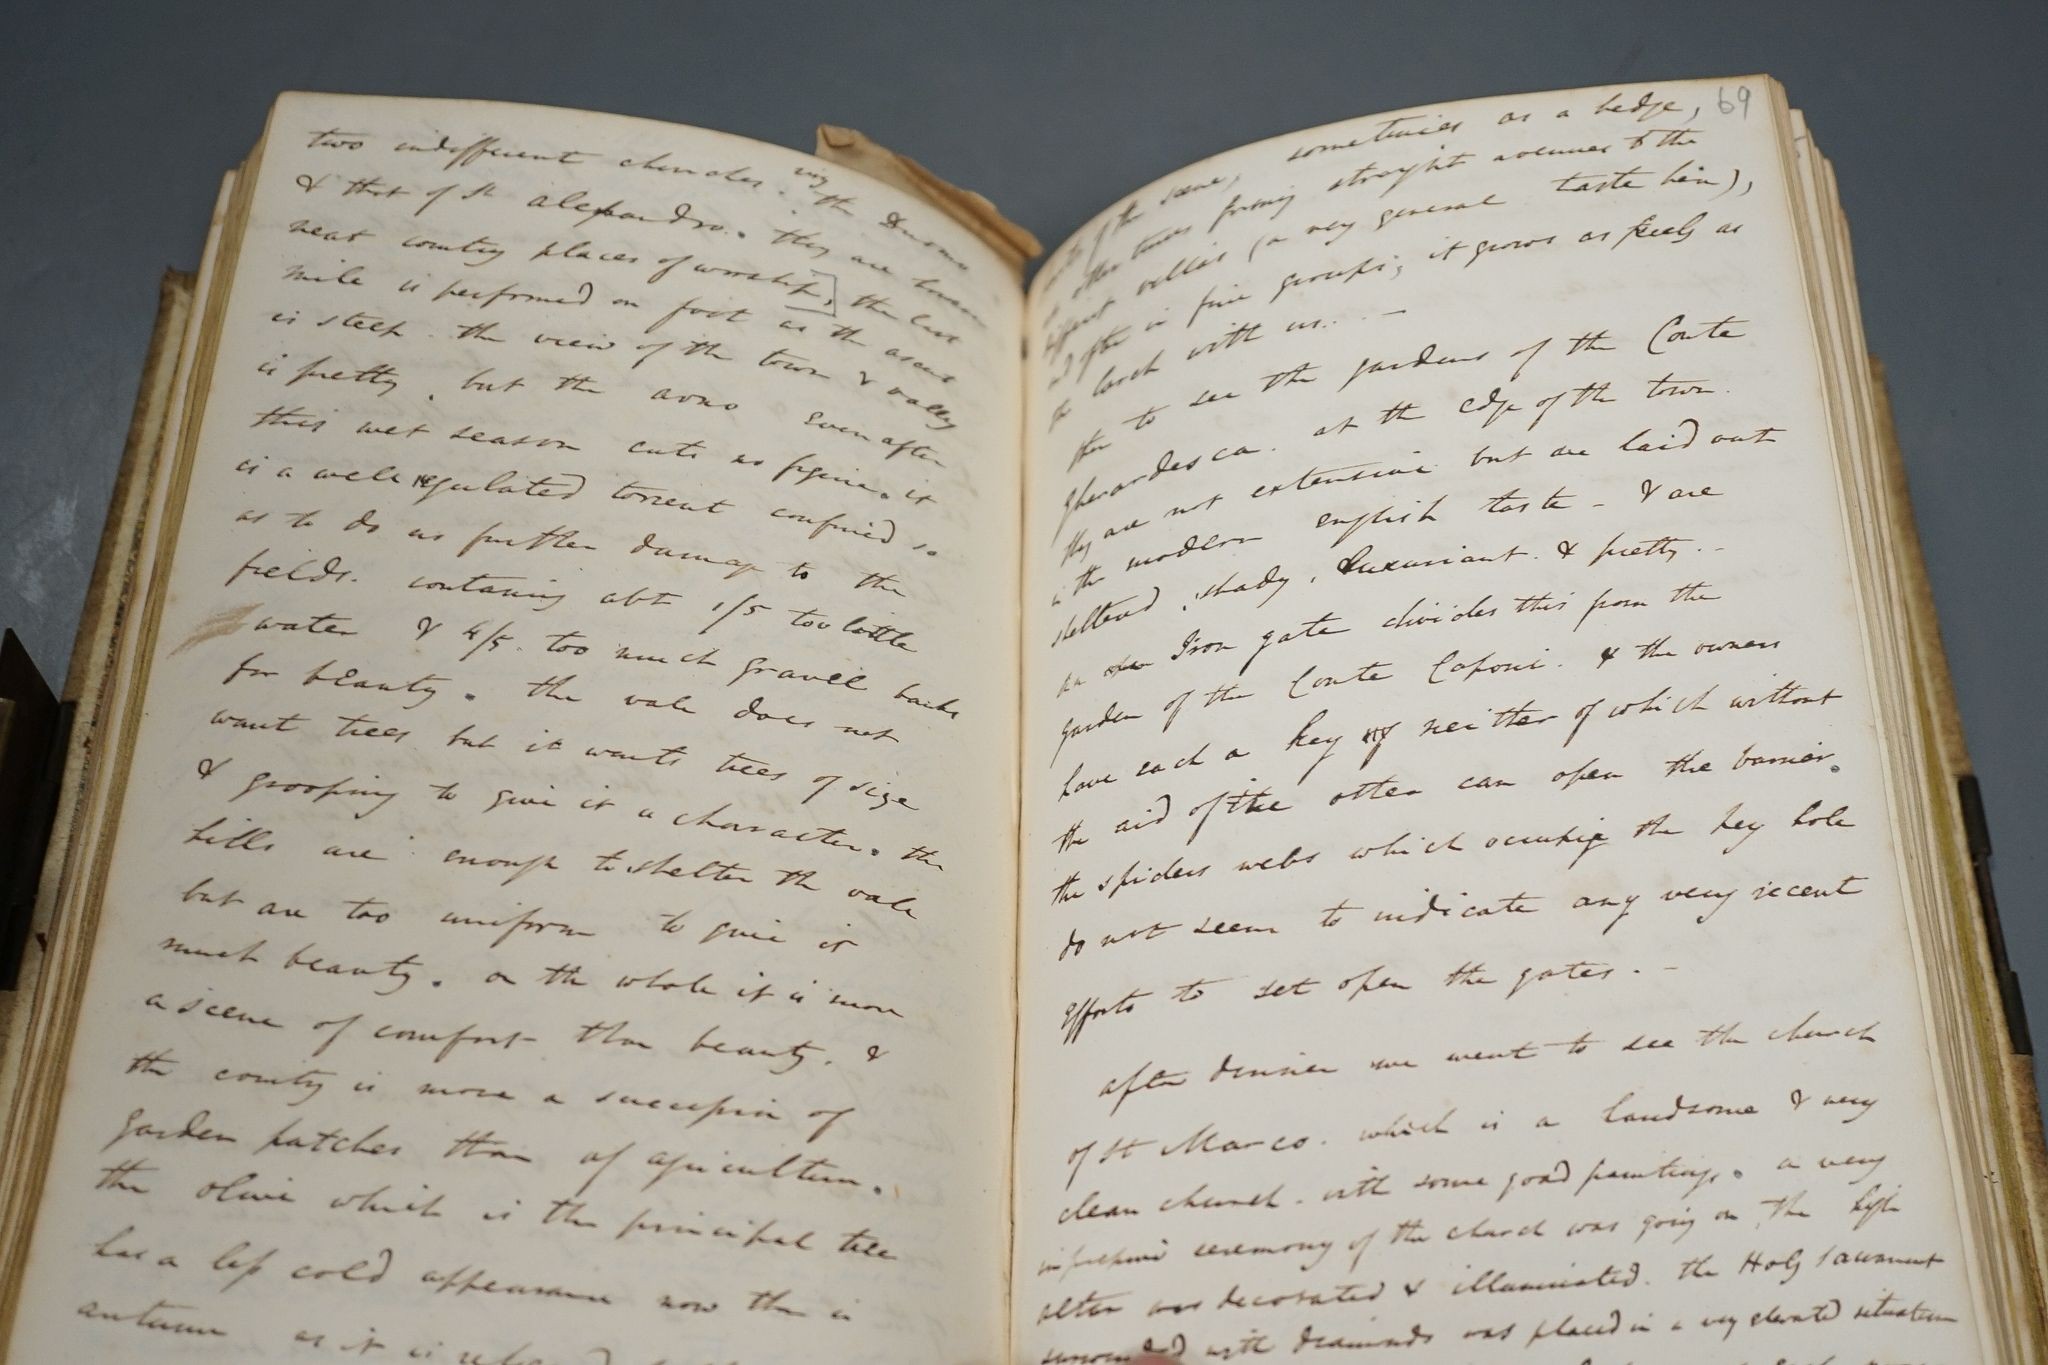 two indifferent churches. viz the Duomo
& that of St Alexandro. they are however
neat country places of worship, the last
mile is performed on foot as the ascent
is steep. the view of the town & valley
is pretty. but the arno even after
this wet season cuts no figure. it
is a well regulated torrent confined so
as to do no further damage to the
fields. containing abt 1/5 too little
water & 4/5. too much gravel banks
for beauty. the vale does not
want trees but it wants trees of size
& grooping to give it a character. the
hills are enough to shelter the vale
but are too uniform to give it
much beauty. on the whole it is more
a scene of comfort than beauty. &
the country is more a succession of
garden patches than of agriculture.
the olive which is the principal tree
has a less cold appearance now than in
autumn as it is
69
of the scene, sometimes as a hedge,
at other times forming streight avenues to the
different villas (a very general taste here),
and often in fine groups; it grows as freely as
the larch with us. . . -
then to see the gardens of the Conte
Gherardesca. at the edge of the town.
they are not extensive but are laid out
in the modern english taste - & are
sheltered, shady, luxuriant. & pretty. -
an Iron gate divides this from the
garden of the Conte Caponi. & the owners
have each a key of neither of which without
the aid of the other can open the barrier.
the spiders webs which occupy the key hole
do not seem to indicate any very recent
efforts to set open the gates. -
after dinner we went to see the church
of St Marco. which is a handsome & very
clean church. with some good paintings. a very
impressive ceremony of the church was going on, the high
altar was decorated & illuminated. the Holy Sacrament
surrounded with diamonds was placed in a very elevated situation